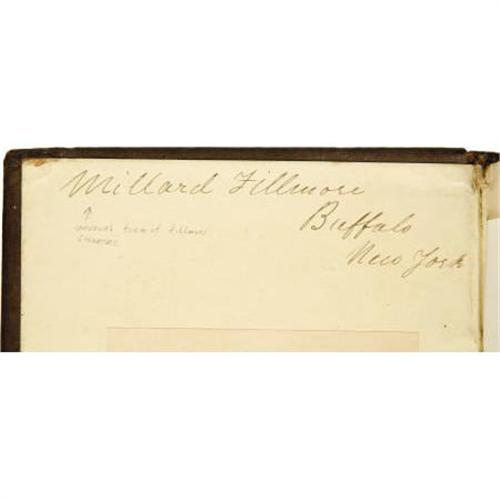 Millard Fillmore
Buffalo
New York
↑
unusual form of Fillmore
signature